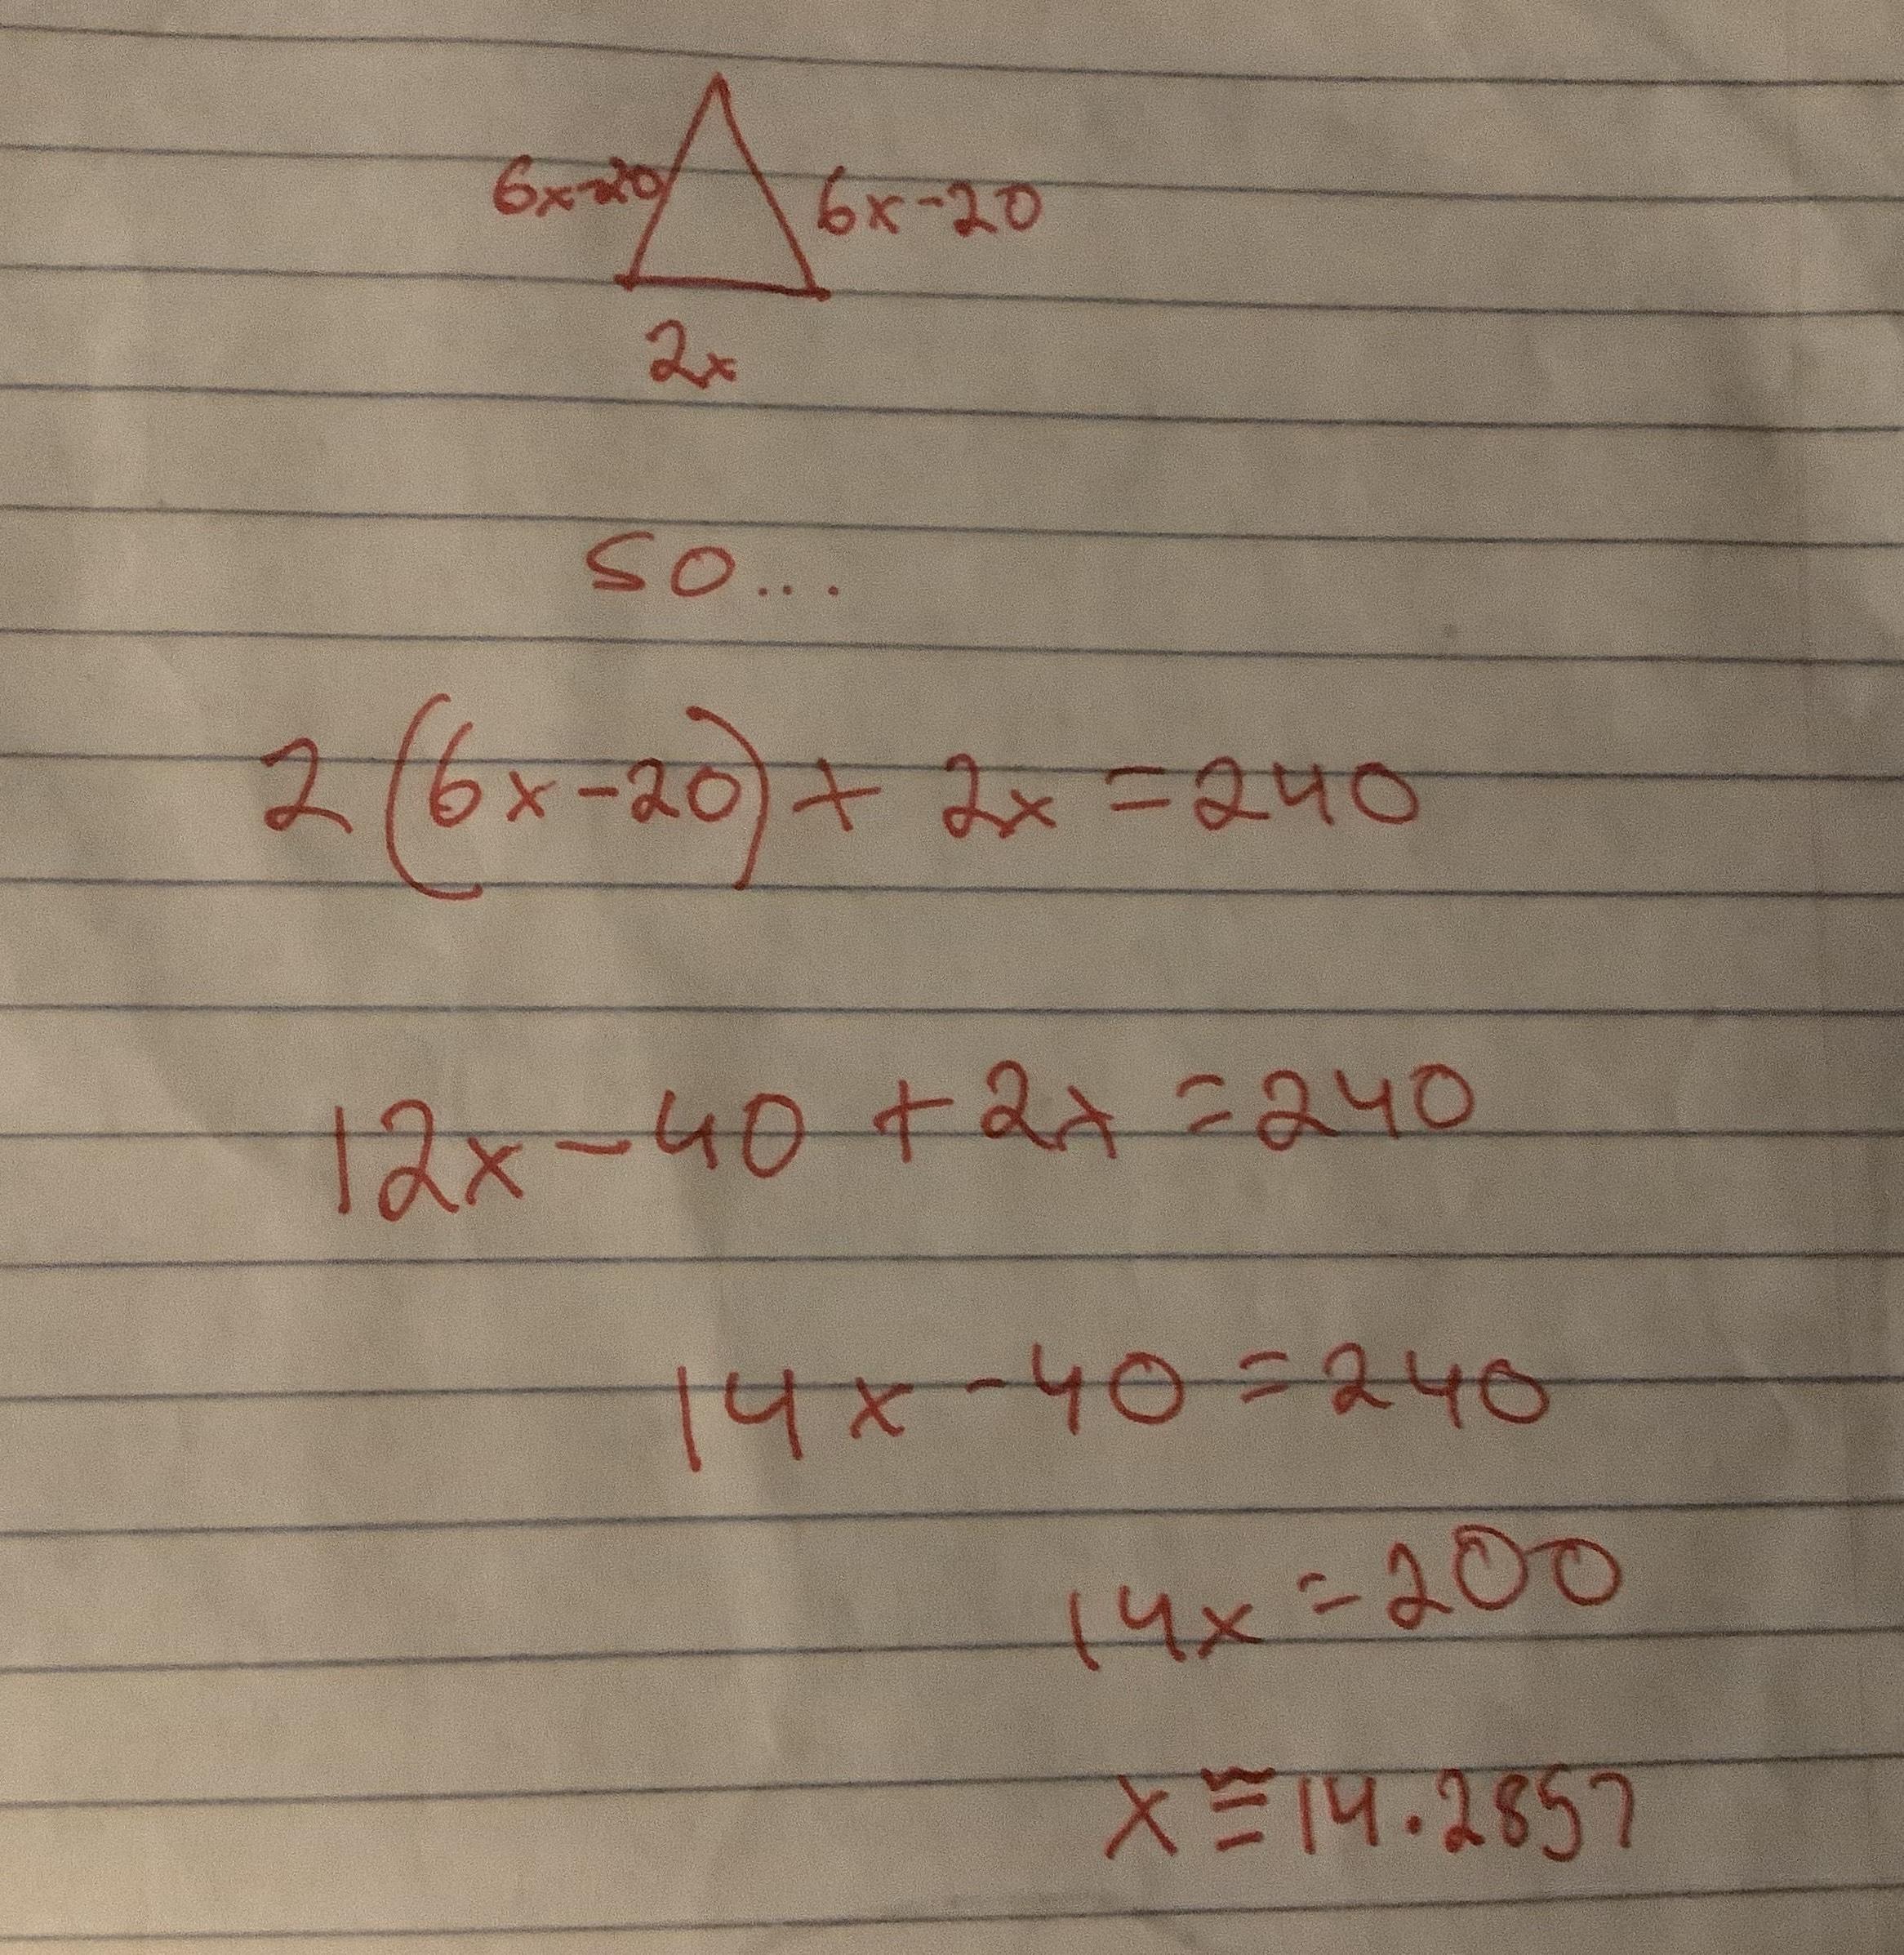 6x-20 6x-20
2x
so...
2(6x-20)+ 2x =240
12x-40 +2x =240
14x-40=240
14x=200
x≅14.2857